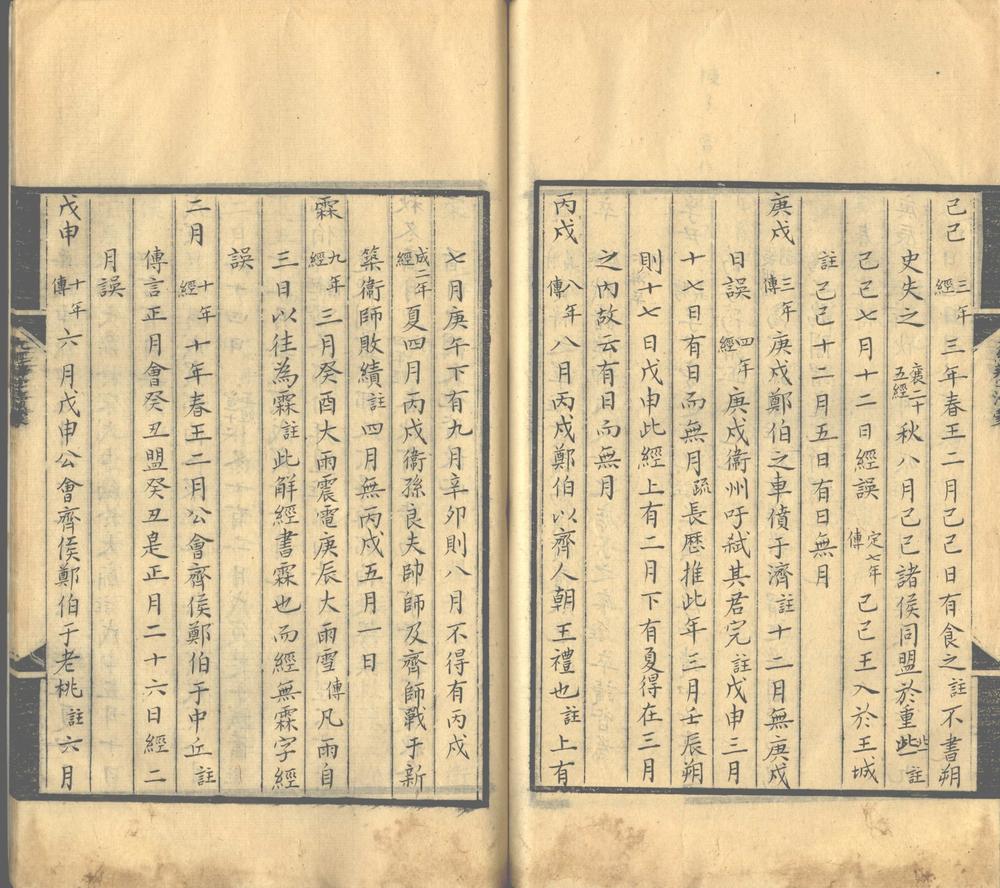 己巳三年經三年春王二月己巳日有食之註不書朔
史失之襄二十五經秋八月己巳諸侯同盟於重丘註
己巳七月十二日經誤定七年傳己巳王入於王城
註己巳十二月五日有日無月
庚戌三年傳庚戌鄭伯之車僨于濟註十二月無庚戌
日誤四年經庚戌衛州吁弒其君完註戊申三月
十七日有日而無月疏長歷推此年三月壬辰朔
則十七日戊申此經上有二月下有夏得在三月
之內故云有日而無月
丙戌八年傳八月丙戌鄭伯以齊人朝王禮也註上有
七月庚午下有九月辛卯則八月不得有丙戌
成二年經夏四月丙戌衛孫良夫帥師及齊師戰于新
築衛師敗績註四月無丙戌五月一日
霖九年經三月癸酉大雨震電庚辰大雨雪傳凡雨自
三日以往為霖註此解經書霖也而經無霖字經
誤
二月十年經十年春王二月公會齊侯鄭伯于中丘註
傳言正月會癸丑盟癸丑是正月二十六日經二
月誤
戊申十年傳六月戊申公會齊侯鄭伯于老桃註六月